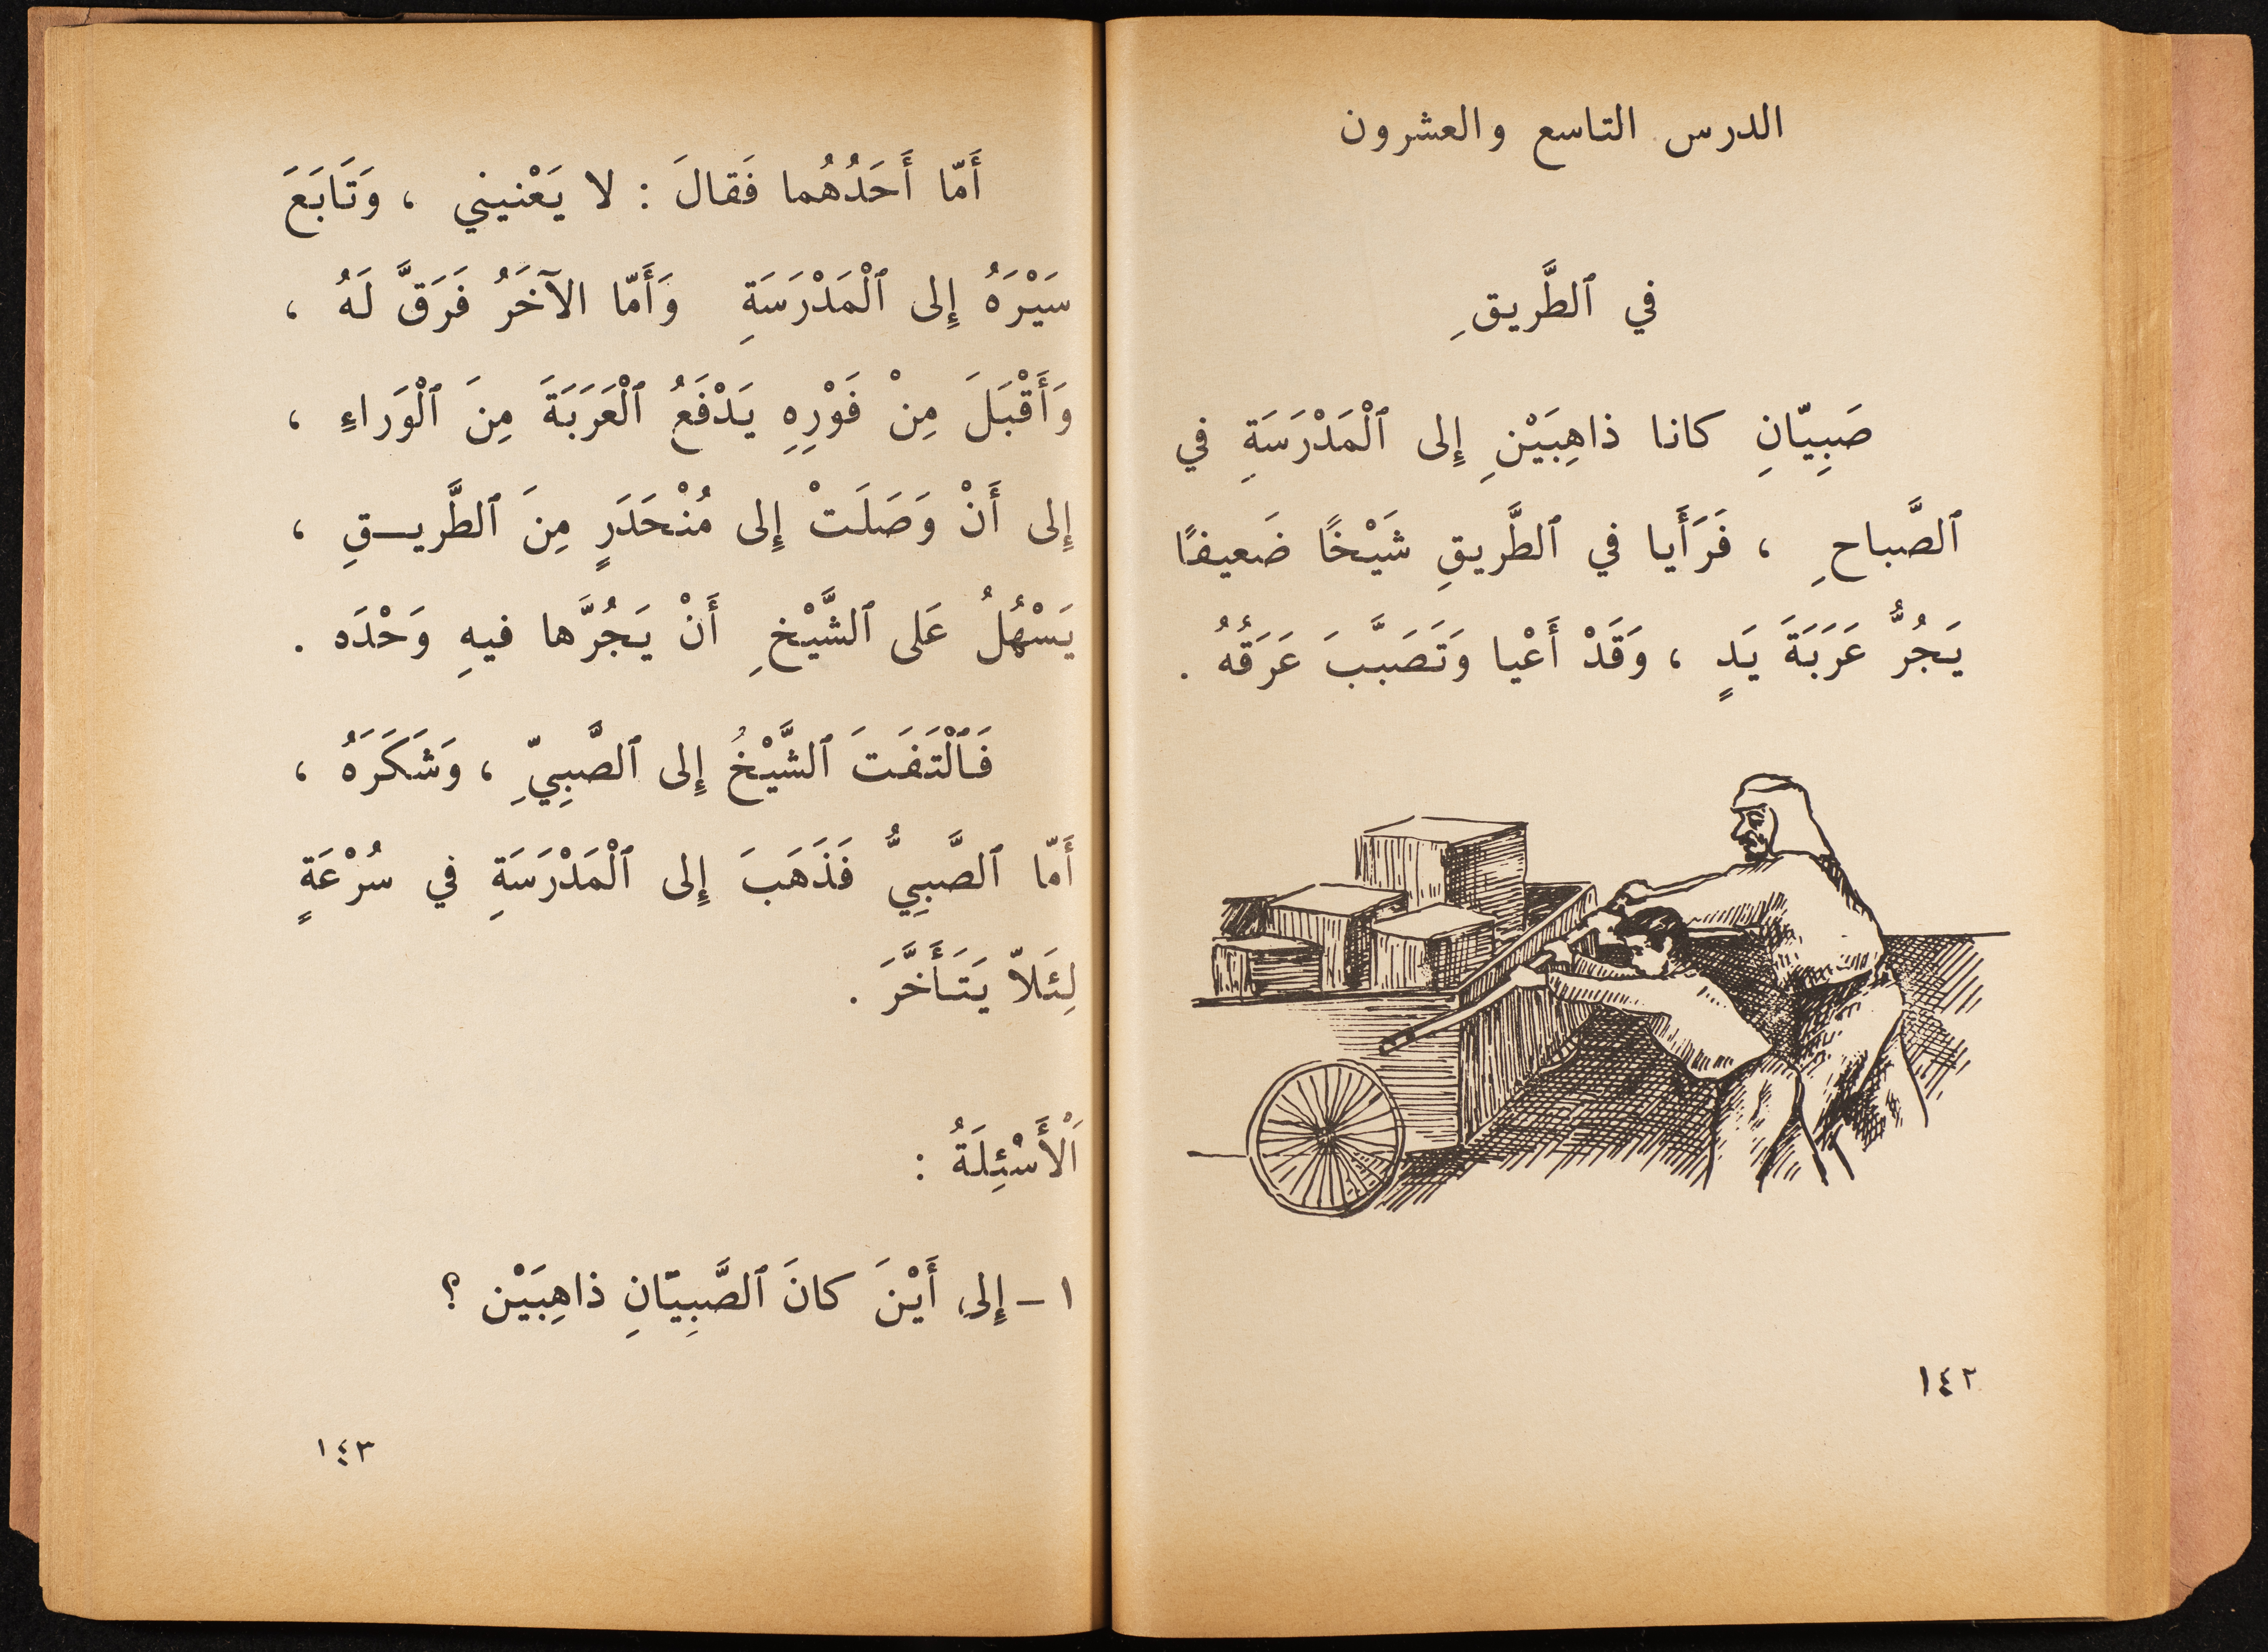 الدرس التاسع والعشرون
في ٱلطَّريقِ
صَبِيّانِ كانا ذاهِبَيْنِ إِلى ٱلْمَدْرَسَةِ في
ٱلصَّباحِ ، فَرَأَيا في ٱلطَّريقِ شَيْخًا ضَعيفًا
يَجُرُّ عَرَبَةَ يَدٍ ، وَقَدْ أَعْيا وَتَصَبَّبَ عَرَقُهُ .
١٤٢
أَمّا أَحَدُهُما فَقالَ : لا يَعْنيني ، وَتَابَعَ
سَيْرَهُ إِلى ٱلْمَدْرَسَةِ وَأَمّا الآخَرُ فَرَقَّ لَهُ ،
وَأَقْبَلَ مِنْ فَوْرِهِ يَدْفَعُ ٱلْعَرَبَةَ مِنَ ٱلْوَراءِ ،
إِلى أَنْ وَصَلَتْ إِلى مُنْحَدَرٍ مِنَ ٱلطَّريـقِ ،
يَسْهُلُ عَلى ٱلشَّيْخِ أَنْ يَجُرَّها فيهِ وَحْدَه .
فَٱلْتَفَتَ ٱلشَّيْخُ إِلى ٱلصَّبِيِّ ، وَشَكَرَهُ ،
أَمّا ٱلصَّبِيُّ فَذَهَبَ إِلى ٱلْمَدْرَسَةِ في سُرْعَةٍ
لِئَلاّ يَتَأَخَّرَ .
اَلْأَسْئِلَةُ :
١ – إِلى أَيْنَ كانَ ٱلصَّبِيّانِ ذاهِبَيْن ؟
١٤٣